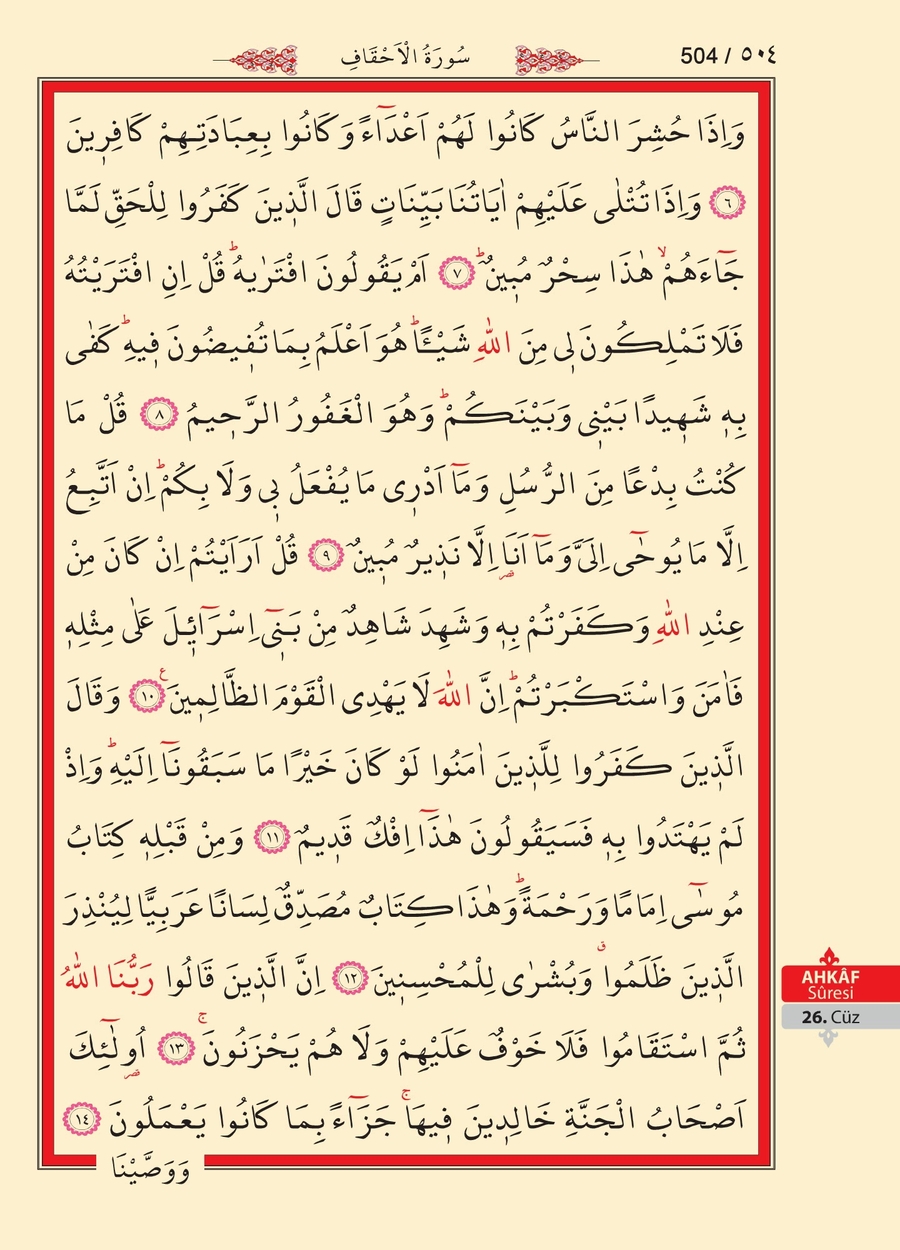 504 / ٥٠٤
سُورَةُ الْاَحْقَافِ
وَاِذَا حُشِرَ النَّاسُ كَانُوا لَهُمْ اَعْدَٓاءً وَكَانُوا بِعِبَادَتِهِمْ كَافِر۪ينَ
﴿٦﴾ وَاِذَا تُتْلٰى عَلَيْهِمْ اٰيَاتُنَا بَيِّنَاتٍ قَالَ الَّذ۪ينَ كَفَرُوا لِلْحَقِّ لَمَّا
جَٓاءَهُمْۙ هٰذَا سِحْرٌ مُب۪ينٌۜ ﴿٧﴾ اَمْ يَقُولُونَ افْتَرٰيهُۜ قُلْ اِنِ افْتَرَيْتُهُ
فَلَا تَمْلِكُونَ ل۪ي مِنَ اللّٰهِ شَيْـًٔاۜ هُوَ اَعْلَمُ بِمَا تُف۪يضُونَ ف۪يهِۜ كَفٰى
بِه۪ شَه۪يدًا بَيْن۪ي وَبَيْنَكُمْۜ وَهُوَ الْغَفُورُ الرَّح۪يمُ ﴿٨﴾ قُلْ مَا
كُنْتُ بِدْعًا مِنَ الرُّسُلِ وَمَٓا اَدْر۪ي مَا يُفْعَلُ ب۪ي وَلَا بِكُمْۜ اِنْ اَتَّبِعُ
اِلَّا مَا يُوحٰٓى اِلَيَّ وَمَٓا اَنَا۬ اِلَّا نَذ۪يرٌ مُب۪ينٌ ﴿٩﴾ قُلْ اَرَاَيْتُمْ اِنْ كَانَ مِنْ
عِنْدِ اللّٰهِ وَكَفَرْتُمْ بِه۪ وَشَهِدَ شَاهِدٌ مِنْ بَن۪ٓي اِسْرَٓائ۪لَ عَلٰى مِثْلِه۪
فَاٰمَنَ وَاسْتَكْبَرْتُمْۜ اِنَّ اللّٰهَ لَا يَهْدِي الْقَوْمَ الظَّالِم۪ينَ۟ ﴿١٠﴾ وَقَالَ
الَّذ۪ينَ كَفَرُوا لِلَّذ۪ينَ اٰمَنُوا لَوْ كَانَ خَيْرًا مَا سَبَقُونَٓا اِلَيْهِۜ وَاِذْ
لَمْ يَهْتَدُوا بِه۪ فَسَيَقُولُونَ هٰذَٓا اِفْكٌ قَد۪يمٌ ﴿١١﴾ وَمِنْ قَبْلِه۪ كِتَابُ
مُوسٰٓى اِمَامًا وَرَحْمَةًۜ وَهٰذَا كِتَابٌ مُصَدِّقٌ لِسَانًا عَرَبِيًّا لِيُنْذِرَ
الَّذ۪ينَ ظَلَمُواۗ وَبُشْرٰى لِلْمُحْسِن۪ينَ ﴿١٢﴾ اِنَّ الَّذ۪ينَ قَالُوا رَبُّنَا اللّٰهُ
ثُمَّ اسْتَقَامُوا فَلَا خَوْفٌ عَلَيْهِمْ وَلَا هُمْ يَحْزَنُونَۚ ﴿١٣﴾ اُو۬لٰٓئِكَ
اَصْحَابُ الْجَنَّةِ خَالِد۪ينَ ف۪يهَاۚ جَزَٓاءً بِمَا كَانُوا يَعْمَلُونَ ﴿١٤﴾
وَوَصَّيْنَا
AHKÂF
Sûresi
26. Cüz